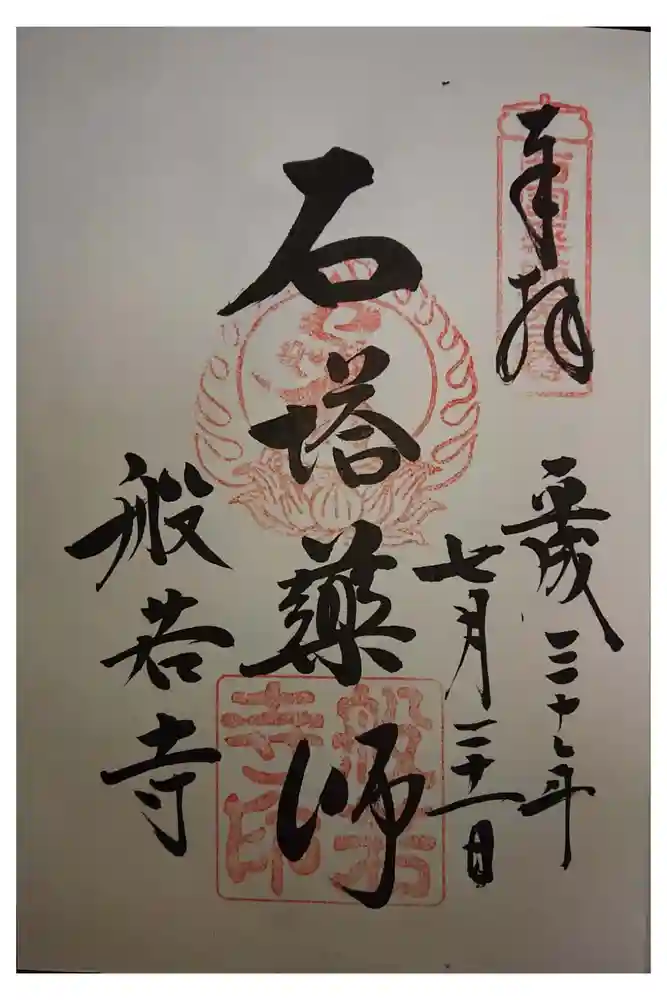 奉拝
平成三十年
七月二十一日
石塔薬師
般若寺
般若
寺印